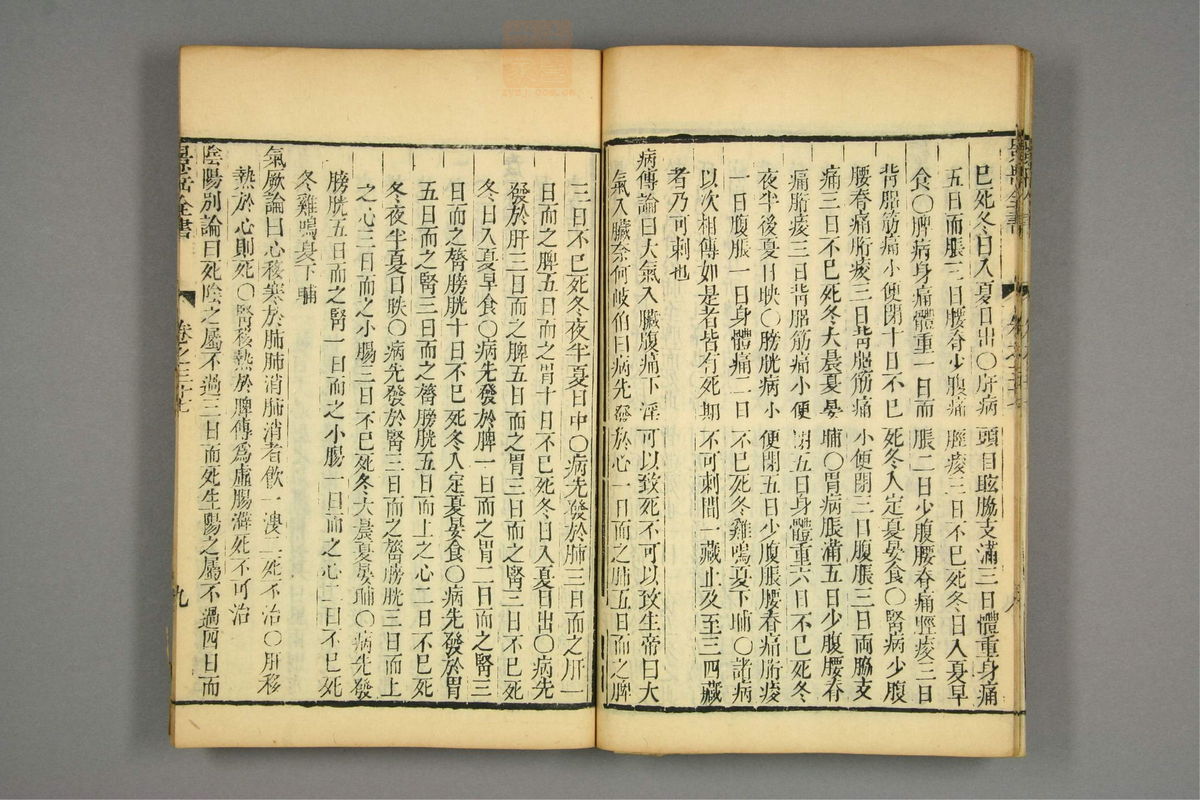 巳死冬日入夏日出○肝病頭目眩脇支滿三日體重身痛
五日而脹三日腰脊少腹痛脛痠三日不已死冬日入夏早
食○脾病身痛體重一日而脹二日少腹腰脊痛脛痠三日
背膂筋痛小便閉十日不已死冬人定夏晏食○腎病少腹
腰脊痛胻痠三日背膂筋痛小便閉三日腹脹三日両脇支
痛三日不已死冬大晨夏晏晡○胃病脹滿五日少腹腰脊
痛胻痠三日背膂筋痛小便閉五日身體重六日不已死冬
夜半後夏日昳○膀胱病小便閉五日少腹脹腰脊痛胻痠
一日腹脹一日身體痛二日不已死冬雞鳴夏下晡○諸病
以次相傳如是者皆有死期不可刺間一藏止及至三四藏
者乃可刺也
病傳論曰大氣入臟腹痛下淫可以致死不可以致生帝曰大
氣入臟奈何岐伯曰病先發於心一日而之肺五日而之脾
三日不已死冬夜半夏日中○病先發於肺三日而之肝一
日而之脾五日而之胃十日不已死冬日入夏日出○病先
發於肝三日而之脾五日而之胃三日而之腎三日不已死
冬日入夏早食○病先發於脾一日而之胃二日而之腎三
日而之膂膀胱十日不已死冬人定夏晏食○病先發於胃
五日而之腎三日而之膂膀胱五日而上之心二日不已死
冬夜半夏日昳○病先發於腎三日而之膂膀胱三日而上
之心三日而之小腸三日不已死冬大晨夏晏晡○病先發
膀胱五日而之腎一日而之小腸一日而之心二日不已死
冬雞鳴夏下晡
氣厥論曰心移寒於肺肺消肺消者飲一溲二死不治○肝移
熱於心則死○腎移熱於脾傳為虛腸澼死不可治
陰陽別論曰死陰之屬不過三日而死生陽之屬不過四日而
景岳全書
卷之三十七
九